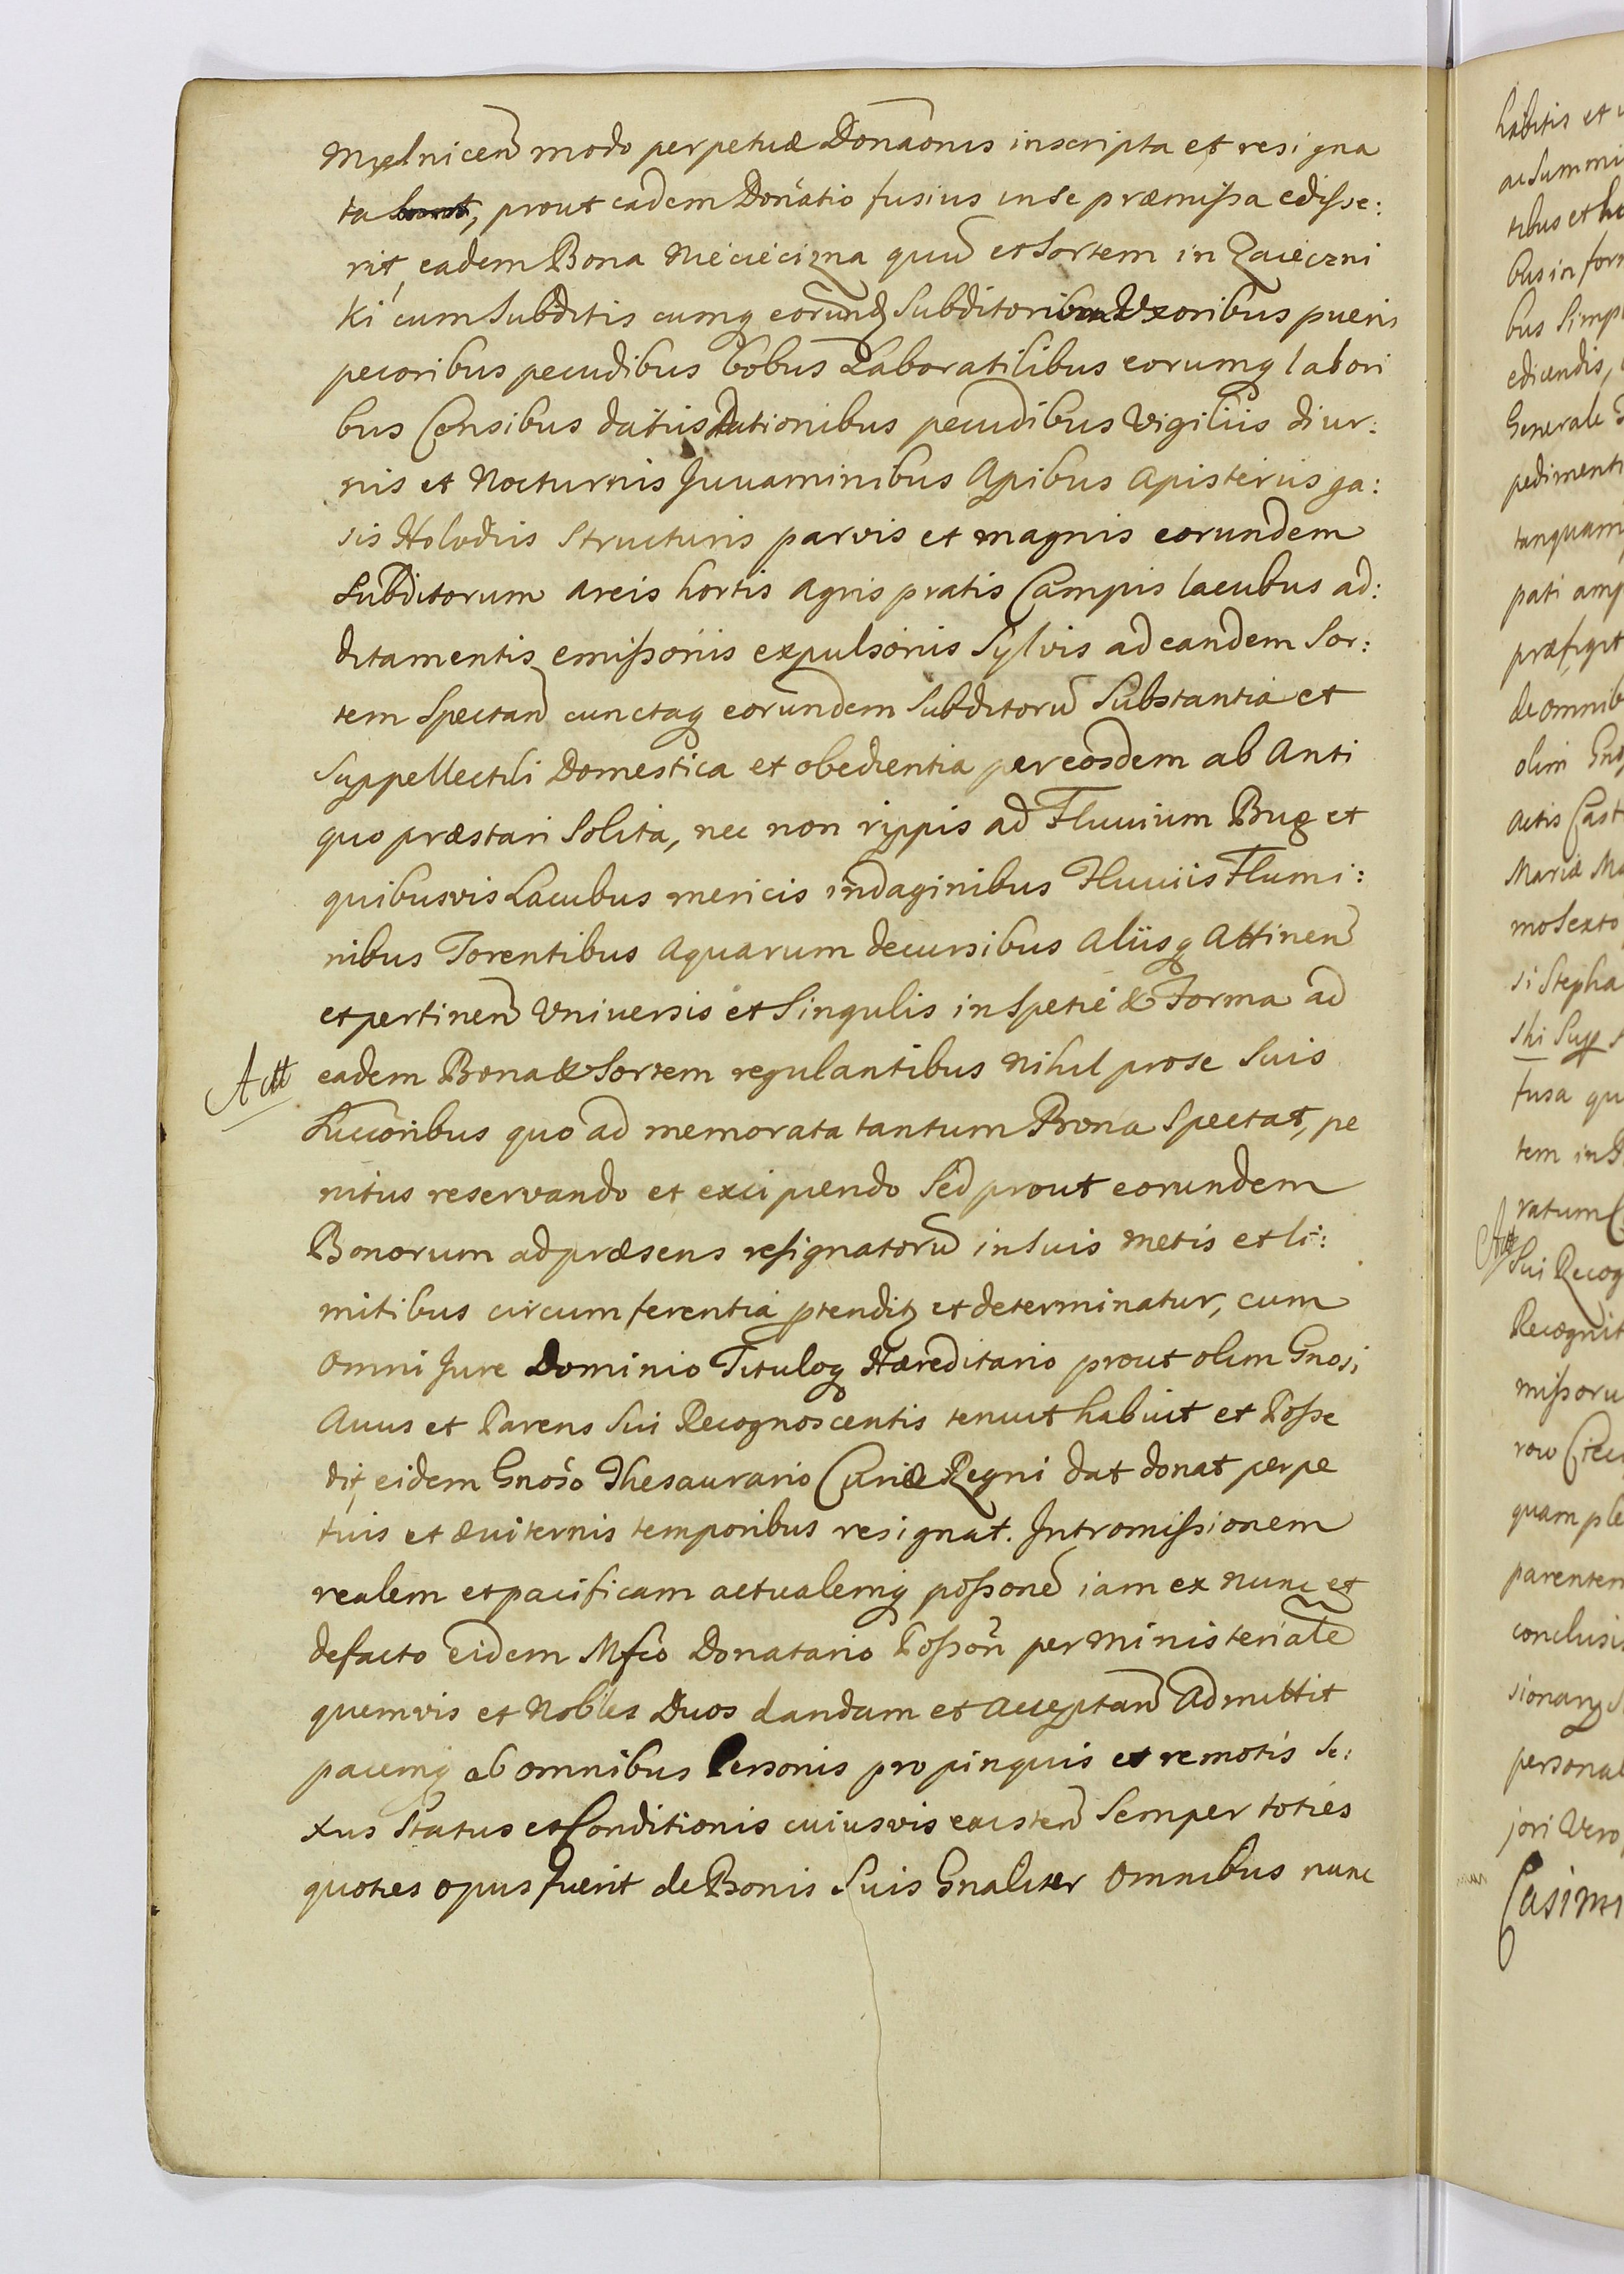 Mielnicen modo perpetuæ Donaonis inscripta et resigna
ta prout eadem Donatio fusius in se præmissa edisse:
rit, eadem Bona Mieciecizna quu et sortem in Zaieczni
ki cum Subditis cumq eorund Subditorum Uxoribus pueris
pecoribus pecudibus bobus Laboratilibus eorumq labori
bus Censibus datiis Dationibus pecudibus Vigiliis diur:
nis et Nocturnis Juvaminibus Apibus Apisteriis ga:
sis Holodiis Structuris parvis et magnis eorundem
Subditorum areis hortis Agris pratis Campis lacubus ad:
ditamentis emissoriis expulsoriis Sylvis ad eandem Sor:
tem Spectan cunctaq eorundem Subditoru Substantia et
Suppellectili Domestica et obedientia per eosdem ab Anti
quo præstari Solita, nec non rippis ad Fluuium Bug et
quibusvis Lacubus mericis indaginibus Fluuiis Flumi:
nibus Torentibus Aquarum decursibus Aliisq Attinen
et pertinen Vniuersis et Singulis in Spetie & Forma ad
Act eadem Bona & Sortem regulantibus Nihil pro se Suis
Succoribus quo ad memorata tantum Bona Spectat, pe
nitus reservando et excipiendo Sed prout eorundem
Bonorum ad præsens resignatoru in Suis Metis et li:
mitibus circumferentia ptendit et determinatur, cum
Omni Jure Dominio Tituloq Hæreditario prout olim Gnosi
Auus et Parens Sui Recognoscentis tenuit habuit et Posse
dit, eidem Gnoso Thesaurario Curiæ Regni dat donat perpe
tuis et æuiternis temporibus resignat. Intromissionem
realem et pacificam actualemq possone iam ex nunc et
defacto eidem Mfco Donatario Posson per Ministeriale
quemvis et Nobles Duos dandam et acceptan Admittit
pacemq ab omnibus Personis propinquis et remotis Se:
xus Status et Conditionis cuiusvis existen Semper toties
quoties opus fuerit de Bonis Suis Gnaliter Omnibus nunc
habitis et
ac Summi
tibus et
bus in for
bus Simp
edicendis,
Generale
pedimenti
tanquam
pati amp
præfigit
de omnib
olim
Actis Cast
Mariæ Ma
mo Sexto
si Stepha
ski Sup
fusa qu
tem in
ratum
Act Sui Recog
Recognit
missoru
quam ple
parentem
conclusi
personal
jori Vero
Casimi